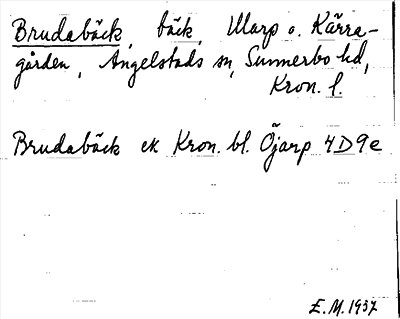 Brudabäck, bäck, Ularp o. Kärra-
gården, Angelstads sn, Sunnerbo hd,
Kron. l.
Brudabäck ek Kron. bl. Öjarp 4D9e
E.M. 1937